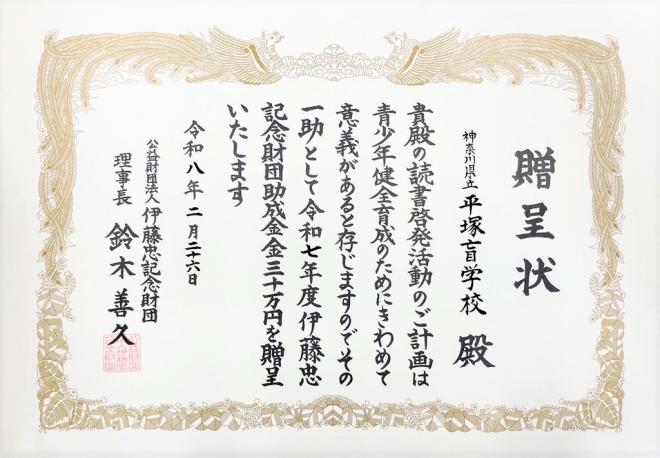 贈呈状
神奈川県立 平塚盲学校 殿
貴殿の読書啓発活動のご計画は
青少年健全育成のためにきわめて
意義があると存じますのでその
一助として令和七年度伊藤忠
記念財団助成金金三十万円を贈呈
いたします
令和八年二月二十六日
公益財団法人 伊藤忠記念財団
理事長 鈴木善久